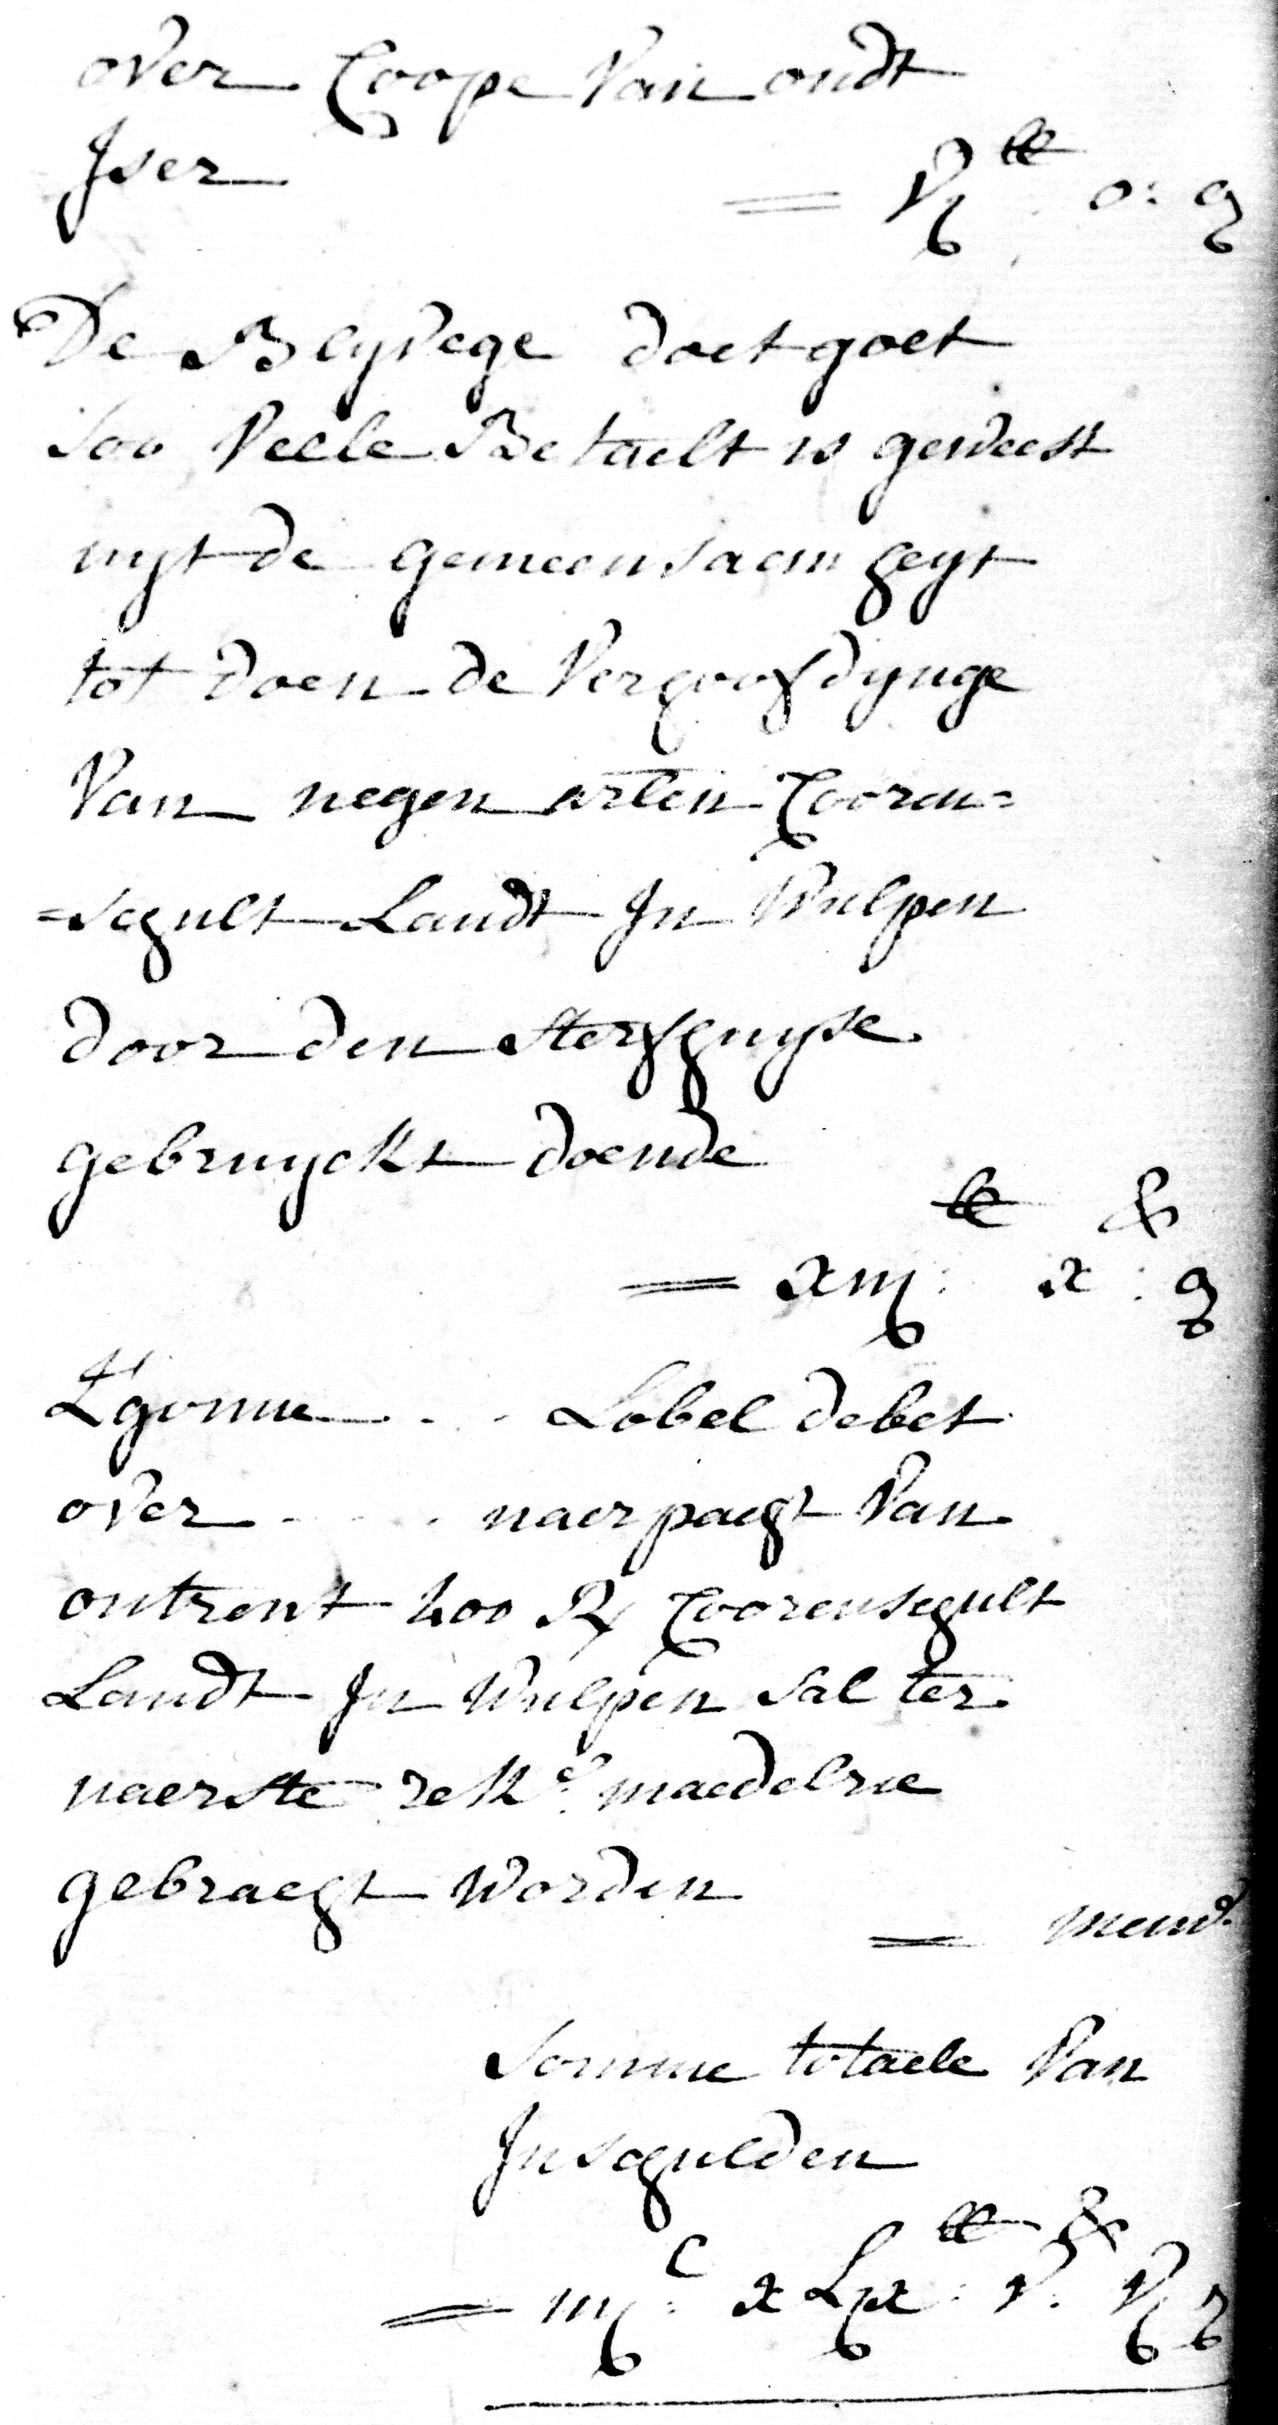 over Coope van oudt
Iser
= vj lb o: g
De Blyvege doet goet
Soo veele Betaelt is geweest
uyt de gemeensaemheyt
tot doen de verhoofdynge
van negen arten Cooren=
=schult Landt In Wulpen
door den sterfhuyse
gebruyckt doende
lb s
= xiij: x: g
D'honne . . Lobel debet
over . . . naer pacht van
ontrent 400 R Coorenschult
Landt In Wulpen sal ter
naerste reke maedelrie
gebracht worden
= memo.
Somme totaele van
Inschulden
lb s
= iij c: x Lix: v: vj g